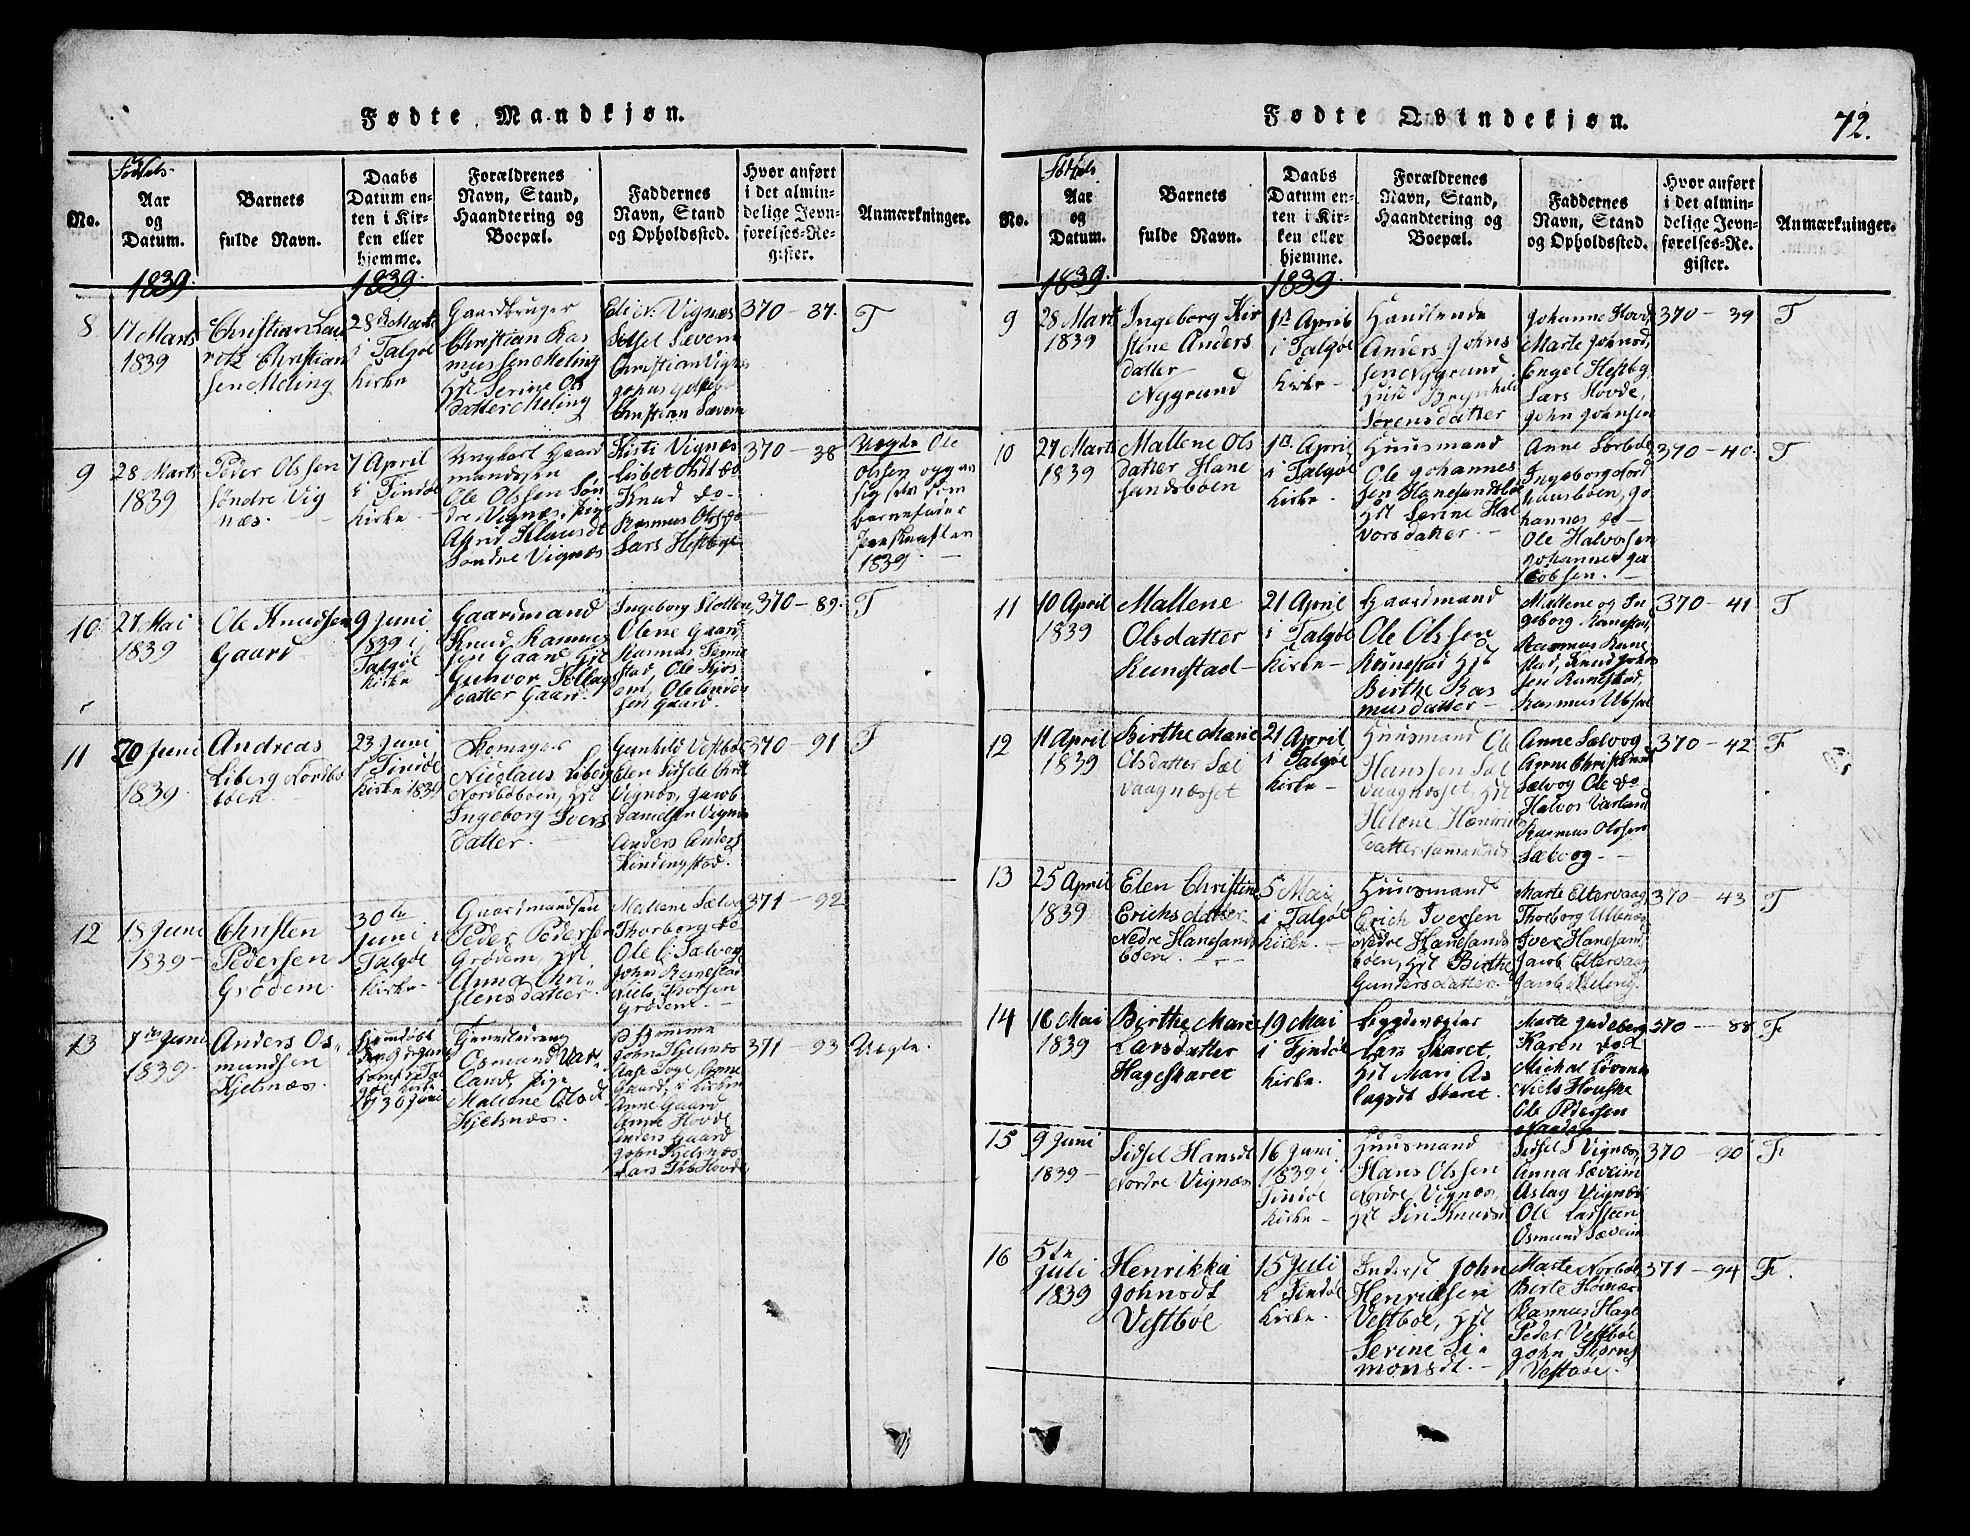 Fødte Mandkjøn.
No.
Fødsels-
Aar
og
Datum.
Barnets
fulde Navn.
Daabs
Datum en-
ten i Kir-
ken eller
hjemme.
Forældrenes
Navn, Stand,
Haandtering og
Boepæl.
Faddernes
Navn, Stand
og Opholdssted.
Hvor anført
i det almin-
delige Jevn-
førelses-Re-
gister.
Anmærkninger.
1839
1839
8
17 Marts
1839
Christian Lau
ritz Christian
sen Meling
28de Marts
i Talgøe
Kirke
Gaardbruger
Christian Ras
mussen Meling
Hst Serine Ols
datter Meling
Vignæs
Sidsel Sævem
Christian Vignes
Christian Sævem
370 - 37.
F
9
28 Marts
1839
Peder Olssen
Søndre Vig
næs.
7 April
i Findøe
Kirke -
Ungkarl Gaard
mandssøn
Ole Olssen Søn
dre Vignæs, Pige
Klausdt
Søndre Vignæs
Kirsti Vignæs
Lisbet
Knud do -
Rasmus Olss do
Lars Hestbøe
370 - 38
Uægte Ole
Olssen opgav
sig selv som
barnefader
1839. -
10.
27 Mai
1839
Ole Knudsen
Gaard
9 Juni
1839 i
Talgøe
Kirke
Gaardmand
Knud Rasmus
sen Gaard Hst
Gunvor Tollags
datter Gaard.
Ingeborg
Olene Gaard,
Rasmus
stad, Ole
Ole
sen Gaard.
370 - 89.
F
11
20 Juni
1839.
Andreas
Liberg Nordbø
bøen. -
23 Juni
i Findøe
Kirke 1839
Skomager
Nicolaus Liberg
Nordbøbøen, Hst
Ingeborg Ivers
datter. -
Gunhild Vestbøe
Elen Sidsele
Vignæs, Jacob
Danielsen Vignæs
Anders Anders
Kindingstad.
370 - 91
F
12
18 Juni
1839 -
Christen
Pedersen
Grødem.
30te
Juni i
Talgøe
Kirke -
Gaardmandsøn
Peder Pedersen
Grødem Hst
Anna Chri-
stensdatter.
Mallene Sælvog
Thorborg do
Ole Sælvog
John Rennestad
Niels Thorsen
Grødem. -
371 - 92
13
7de Juni
1839 -
Anders Os-
mundsen
Hjelnæs.
Hjemdøbt
den 9de Juni
Tal
gøe Kirke
30 Juni
Tjenestedreng
Osmund Var-
land, Pige
Mallene Olsdt
Hjelsnæs.
Hjemme
John Hjelnæs
Gaard, i Kirken
Anne Gaard
Anne Hovde
Anders Gaard
John Hjelnæs
Lars Hovde
371 - 93
Uægte.
Fødte Qvindekjøn.
72.
No.
Fødsels
Aar
og
Datum.
Barnets
fulde Navn.
Daabs
Datum en-
ten i Kir-
ken eller
hjemme.
Forældrenes
Navn, Stand,
Haandtering og
Boepæl.
Faddernes
Navn, Stand
og Opholdssted.
Hvor anført
i det almin-
delige Jevn-
førelses-Re-
gister.
Anmærkninger.
1839.
1839
9
28 Mart
1839
Ingeborg Kir
stine Anders
datter -
Nygrund
1te April
i Talgøe
Kirke -
Handlende
Anders Johns
sen Nygrund
Brynhild
Sørensdatter
Johanne Hovde
Marte Johnsd,
Engel Hestbø,
Lars Hovde,
John Johnsen
370 - 39
F
10
27 Marts
1839
Mallene Ols
datter Hane
sundsbøen
1te April
i Talgøe
Kirke -
Huusmand
Ole Johannes
sen Hanesundsbøe
Hst Serine Hal
vorsdatter. -
Anne
Ingeborg Nord
Jo
hannes do -
Ole Halvorsen
Johannes Ja
cobsen. -
370 - 40.
F
11
10 April
1839
Mallene
Olsdatter
Runestad -
21 April
i Talgøe
Kirke -
Gaardmand
Ole Olssen
Runestad Hst
Birthe Ras
musdatter -
Mallene og In
geborg Runestad,
Rasmus Rune
stad, Knud Johns
sen Runestad,
Rasmus
370 - 41
F
12
11 April
1839
Birthe Marie
Olsdatter Sæl
vaagnæsset
21 April
i Talgøe
Kirke -
Huusmand Ole
Hanssen Sæl
vaagnæsset, Hst
Helene Henriks
datter
Anne Sælvog
Anne
Sælvog Ole do
Halvor Varland
Rasmus Olssen
Sælvog - -
370 - 42
F
13
25 April
1839
Elen Christine
Erichsdatter
Nedre Hanesunds
bøen. -
5 Mai
i Talgøe
Kirke. -
Huusmand
Erich Iversen
Nedre Hanesunds
bøen, Hst Birthe
Gundersdatter.
Marte Eltervaag
Thorborg
Iver Hanesund
Jacob Eltervaag
Jacob Meling.
370 - 43
F
14
16 Mai
1839
Birthe Marie
Larsdatter
Hageskaret
19 Mai
i Findøe
Kirke.
Lars Skaret,
Hst Mari As
lagsdt Skaret.
Marte Judeberg
Karen do
Michal
Niels
Ole Pedersen
370 -- 88
F
15
9 Juni
1839 -
Sidsel Hansdt
Nordre Vignæs
16 Juni
1839 i
Findøe
Kirke -
Huusmand
Hans Olssen
Nordre Vignæs,
Hst Siri Knudsd
Sidsel S Vignæs,
Anna Sæveim
Aslag Vignæs
Ole Larssen
Osmund Sæveim
370 - 90
F
16
5te
Juli
1839
Henrikka
Johnsdt
Vestbøe
15 Juli
i Findøe
Kirke -
Inderst John
Henriksen
Vestbøe, Hst
Serine Si-
monsdt. -
Marte Norbøe
Birte
Rasmus Hage
Peder Vestbøe
John
Vestbøe.
371 - 94
F.